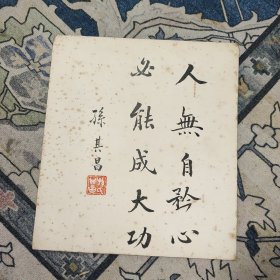 人無自矜心
必能成大功
孫其昌